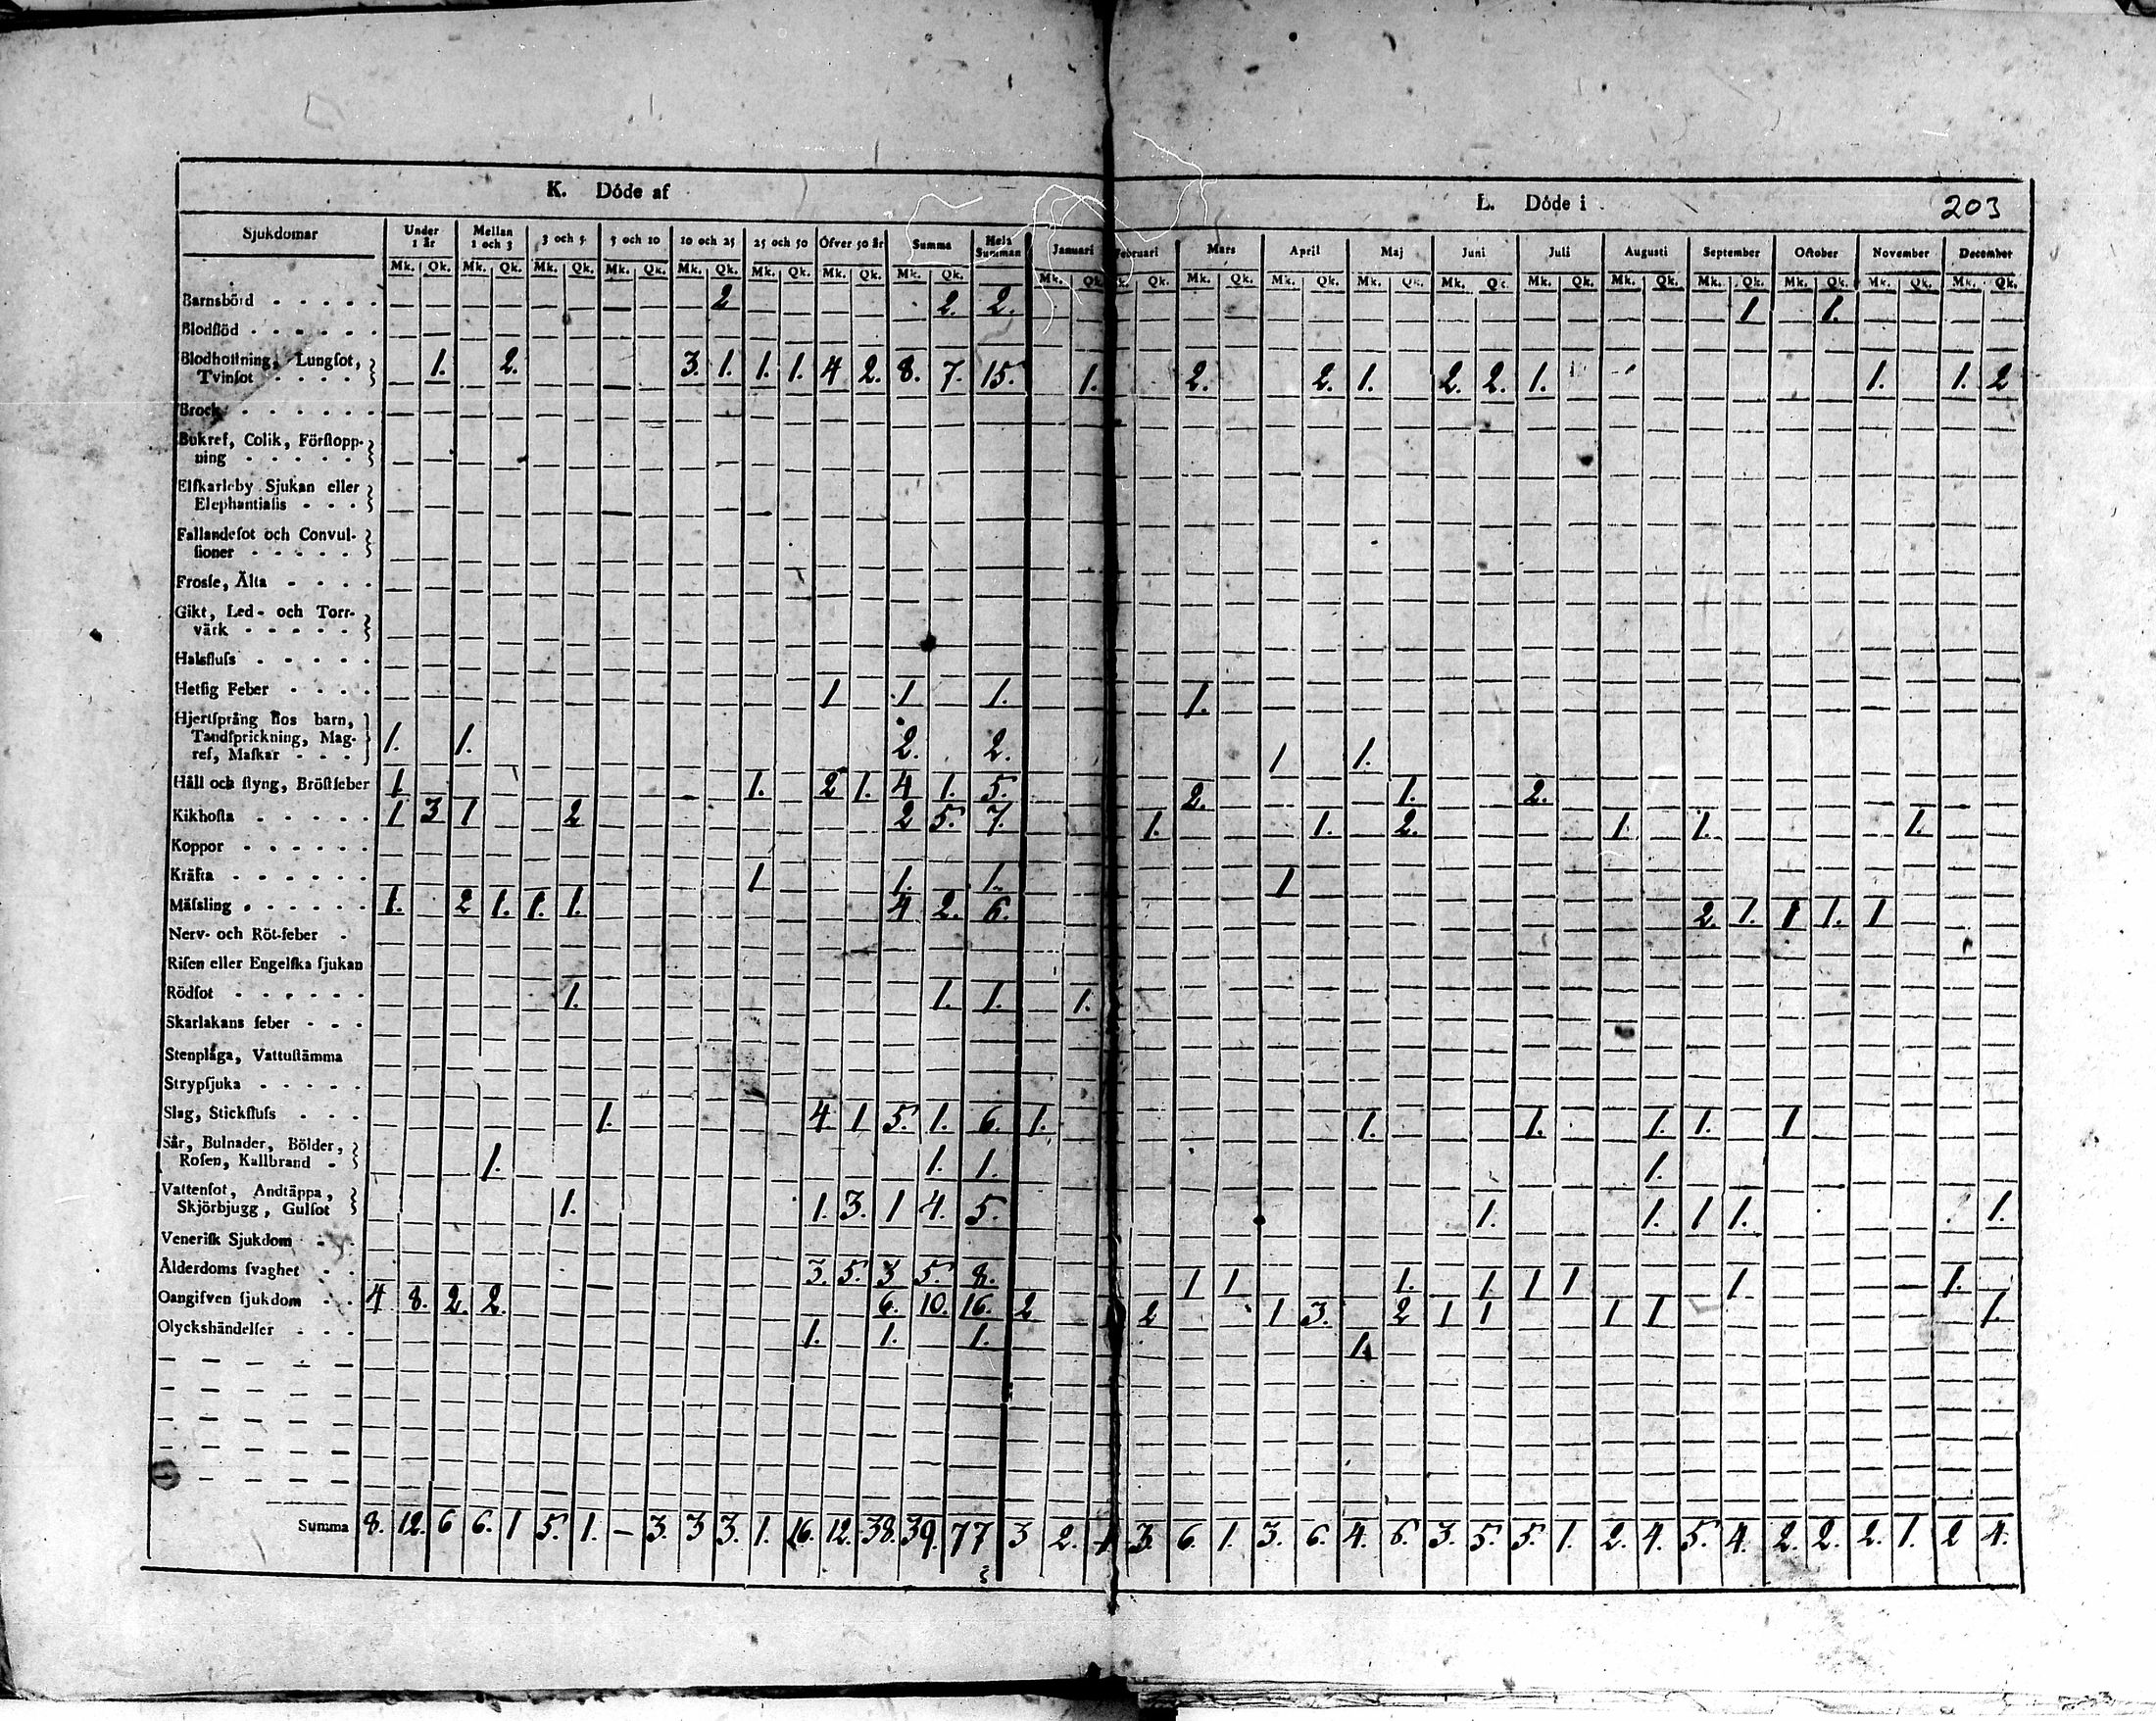 K. Döde af
L. Döde i
203
Sjukdomar Under 1 år Mellan 1 och 3 3 och 5 5 och 10 10 och 25 25 och 50 Öfver 50 år Summa Hela Summan Januari Februari Mars April Maj Juni Juli Augusti September October November December
Mk. Qk. Mk. Qk. Mk. Qk. Mk. Qk. Mk. Qk. Mk. Qk. Mk. Qk. Mk. Qk. Mk. Qk. Qk. Mk. Qk. Mk. Qk. Mk. Qk. Mk. Qk. Mk. Qk. Mk. Qk. Mk. Qk. Mk. Qk. Mk. Qk. Mk. Qk.
Barnsbörd 2 2. 2. 1 1.
Blodflöd
Blodhostning, Lungſot,
Tvinſot 1. 2. 3. 1. 1. 1. 4 2. 8. 7. 15. 1. 2. 2. 1. 2. 2. 1. 1. 1. 2
Brock
Bukref, Colik, Förſtopp-
ning
Elfkarleby Sjukan eller
Elephantiaſis
Fallandeſot och Convul-
ſioner
Frosſe, Älta
Gikt, Led- och Torr-
värk
Halsfluſs
Hetſig Feber 1 1 1. 1.
Hjertſprång hos barn,
Tandſprickning, Mag-
ref, Maſkar 1. 1. 2. 2. 1 1.
Håll och ſtyng, Bröſtfeber 1 1. 2 1. 4 1. 5. 2. 1. 2.
Kikhoſta 1 3 1 2 2 5. 7. 1. 1. 2. 1. 1. 1.
Koppor
Kräfta 1 1. 1. 1
Mäſsling 1. 2 1. 1. 1. 4 2. 6. 2. 1. 1 1. 1
Nerv- och Röt-feber
Riſen eller Engelſka ſjukan
Rödſot 1. 1. 1. 1.
Skarlakans feber
Stenplåga, Vattuſtämma
Strypſjuka
Slag, Stickfluſs 1. 4 1 5. 1. 6. 1. 1. 1. 1. 1. 1
Sår, Bulnader, Bölder,
Roſen, Kallbrand 1. 1. 1. 1.
Vattenſot, Andtäppa,
Skjörbjugg, Gulſot 1. 1. 3. 1 4. 5. 1. 1. 1 1. 1.
Veneriſk Sjukdom
Ålderdoms ſvaghet 3. 5. 3 5. 8. 1 1 1. 1 1 1 1. 1.
Oangifven ſjukdom 4 8. 2. 2. 6. 10. 16. 2 2 1 3. 2 1 1 1 1 1.
Olyckshändelſer 1. 1. 1. 1.
Summa 8. 12. 6 6. 1 5. 1. – 3. 3 3. 1. 16. 12. 38. 39. 77 3 2. 1 3. 6. 1. 3. 6. 4. 6. 3. 5. 5. 1. 2. 4. 5. 4. 2. 2. 2. 1. 2 4.